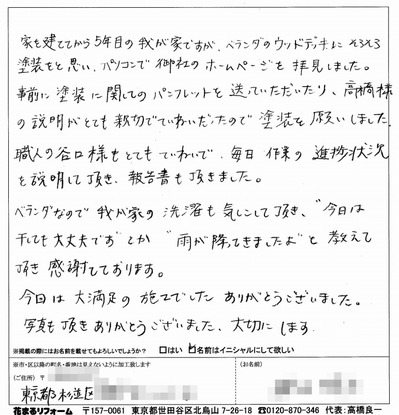 家を建ててから5年目の我が家ですが、ベランダのウッドデッキにそろそろ
塗装をと思い、パソコンで御社のホームページを拝見しました。
事前に塗装に関してのパンフレットを送っていただいたり、高橋様
の説明がとても親切でていねいだったので塗装を願いしました。
職人の谷口様もとてもていねいで、毎日作業の進捗状況
を説明して頂き、報告書も頂きました。
ベランダなので我が家の洗濯も気にして頂き、"今日は
干しても大丈夫です"とか"雨が降ってきましたよ"と教えて
頂き感謝しております。
今回は大満足の施工でした ありがとうございました。
写真も頂きありがとうございました、大切にします。
※掲載の際にはお名前を載せてもよろしいでしょうか? □はい ☑名前はイニシャルにして欲しい
※市・区以降の町名・番地は見えないように加工致します
(ご住所) 〒
(お名前)
東京都杉並区
花まるリフォーム 〒157-0061 東京都世田谷区北烏山7-26-18 ☎0120-870-346 代表:高橋良一